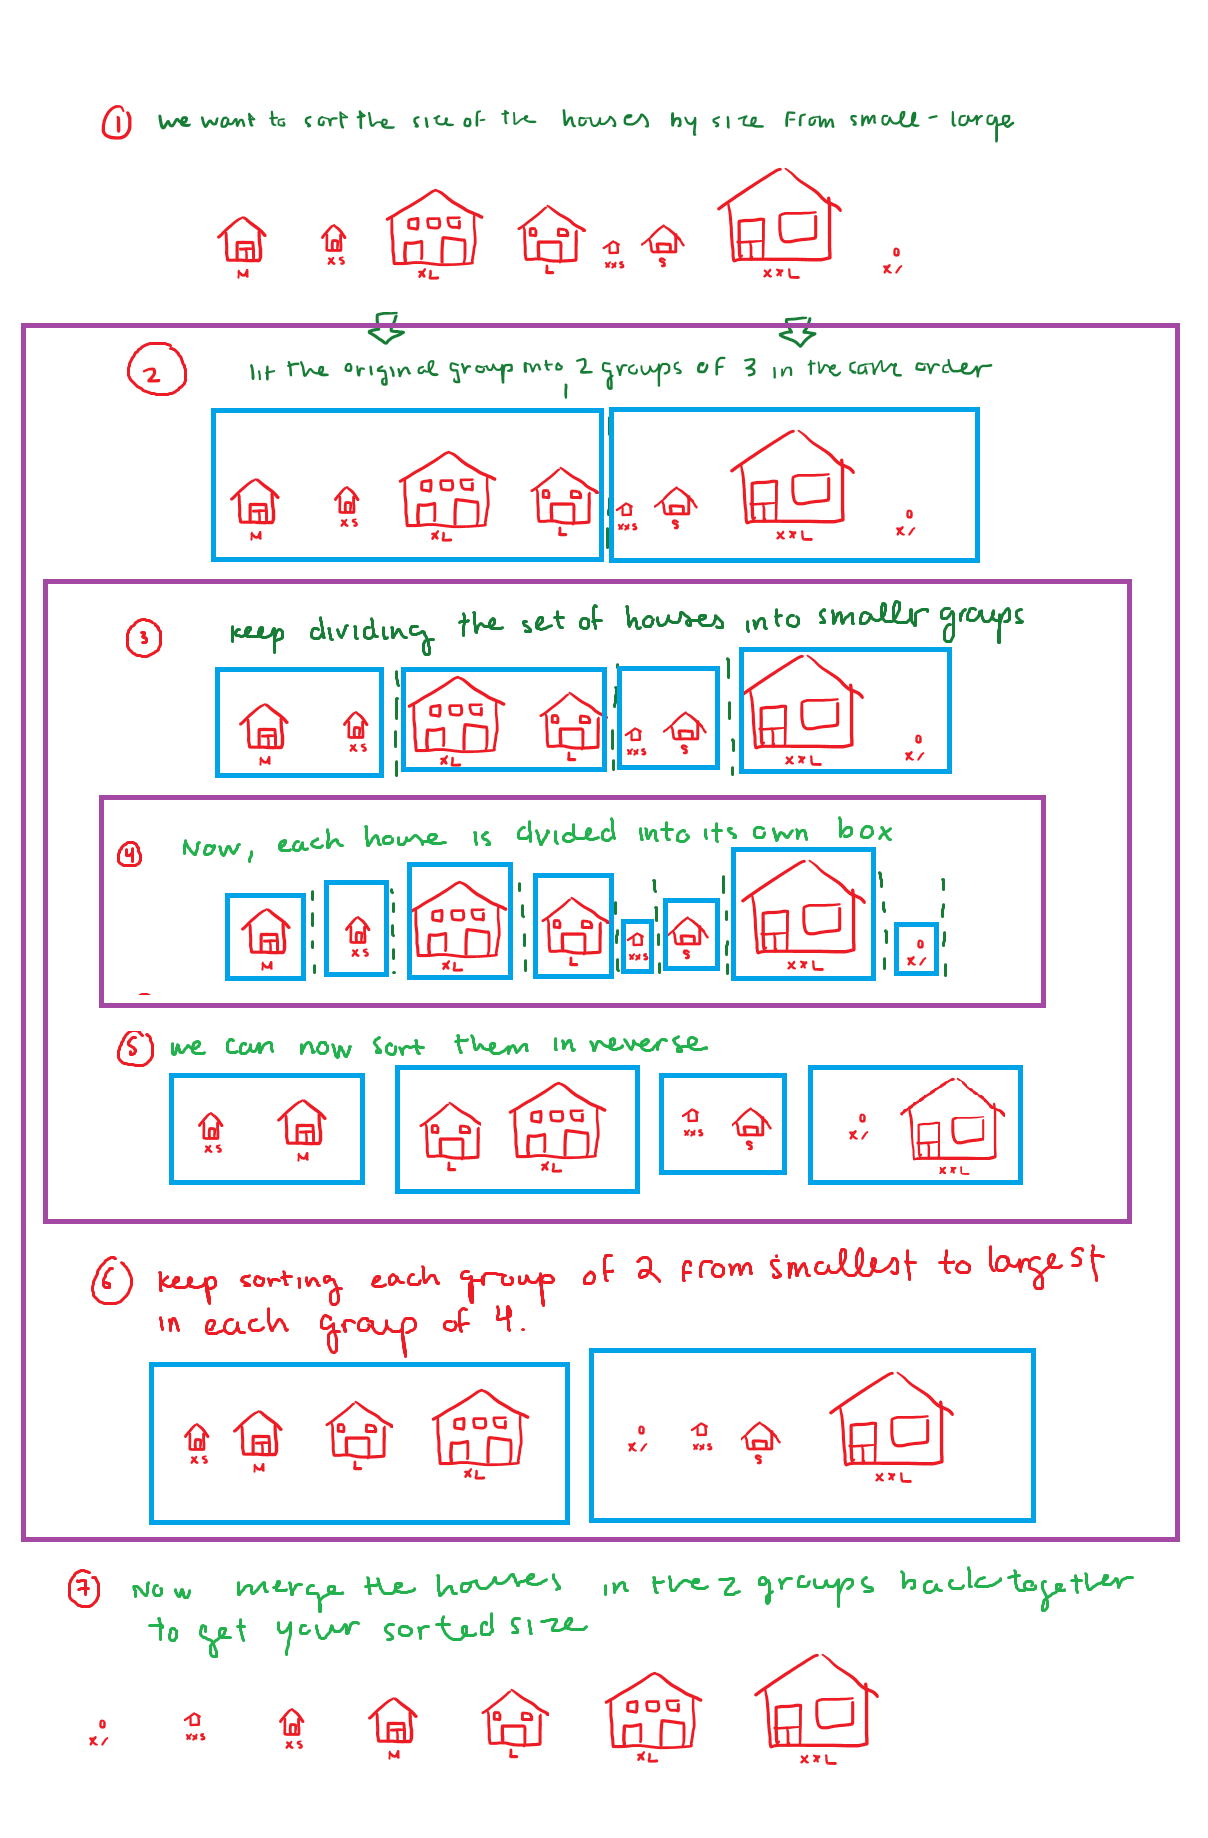 1 we want to sort the size of the houses by size from small - large
M XS XL L XXS S XXL X/
2 lit the original group into, 2 groups of 3 in the same order
M XS XL L XXS S XXL X/
3 keep dividing the set of houses into smaller groups
M XS XL L XXS S XXL X/
4 Now, each house is divided into its own box
M XS XL L XXS S XXL X/
5 we can now sort them in reverse
XS M L XL XXS S X/ XXL
6 keep sorting each group of 2 from smallest to largest
in each group of 4.
XS M L XL X/ XXS S XXL
7 Now merge the houses in the 2 groups back together
to get your sorted size
X/ XXS XS M L XL XXL